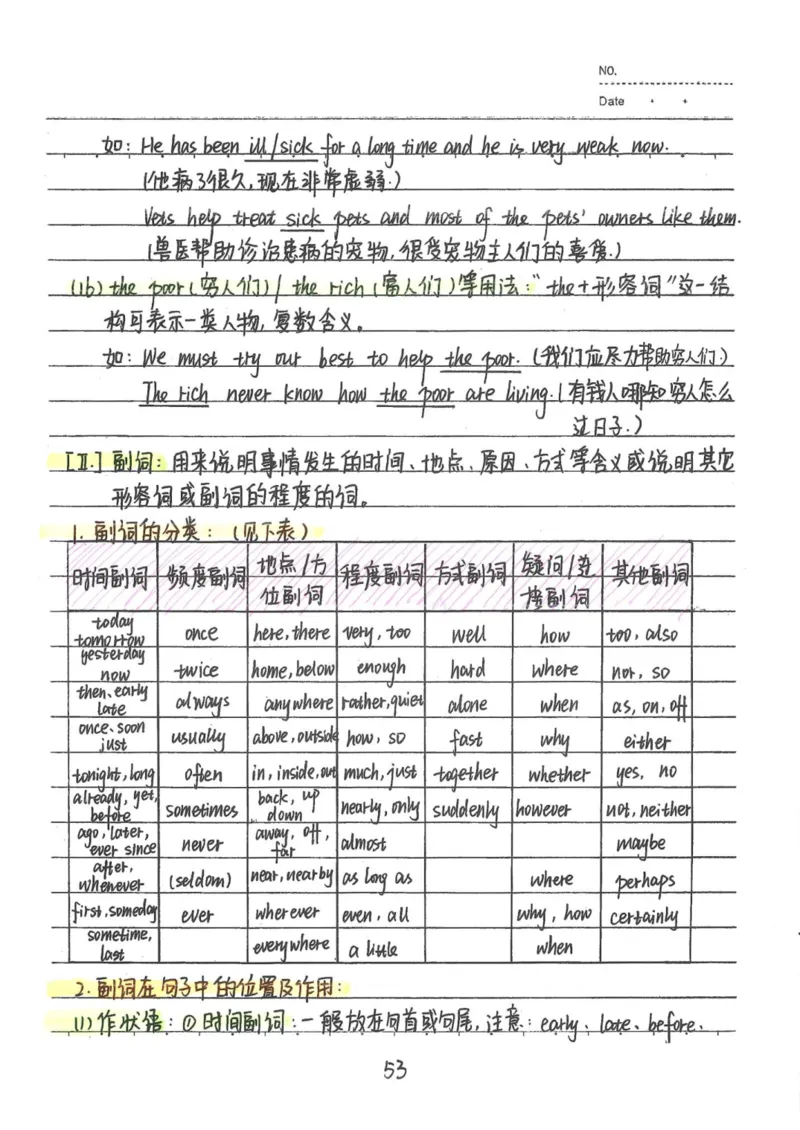 NO.
Date
如: He has been ill/sick for a long time and he is very weak now.
(他病了很久,现在非常虚弱.)
Vets help treat sick pets and most of the pets' owners like them.
(兽医帮助诊治患病的宠物,很受宠物主人们的喜爱.)
(16) the poor(穷人们)/ the rich(富人们)等用法:"the+形容词"这一结
构可表示一类人物,复数含义。
如: We must try our best to help the poor. (我们应尽力帮助穷人们.)
The rich never know how the poor are living.(有钱人哪知穷人怎么
过日子.)
[Ⅱ.] 副词: 用来说明事情发生的时间、地点、原因、方式等含义或说明其它
形容词或副词的程度的词。
1. 副词的分类: (见下表)
时间副词 频度副词 地点/方位副词 程度副词 方式副词 疑问/连接副词 其他副词
today tomorrow once here, there very, too well how too, also
yesterday now twice home, below enough hard where nor, so
then、early late always anywhere rather,quiet alone when as, on, off
once、soon just usually above, outside how, so fast why either
tonight, long often in, inside, out much, just together whether yes, no
already, yet, before sometimes back, up down nearly, only suddenly however not, neither
ago, later, ever since never away, off, far almost maybe
after, whenever (seldom) near, nearby as long as where perhaps
first, someday ever wherever even, all why, how certainly
sometime, last everywhere a little when
2. 副词在句子中的位置及作用:
(1) 作状语: ① 时间副词: 一般放在句首或句尾, 注意: early、late、before、
53